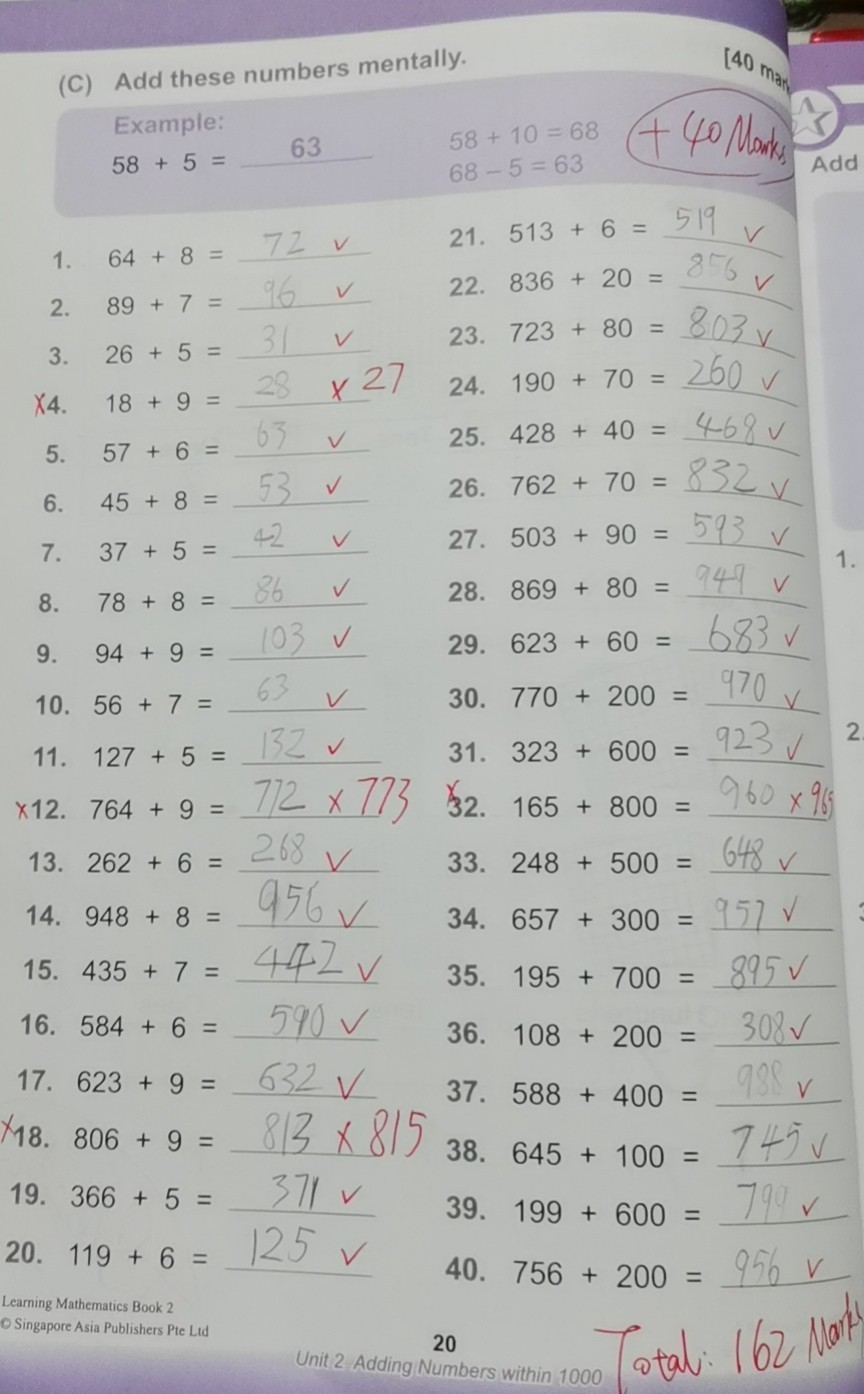 (C) Add these numbers mentally.
[40 mar
Example:
58 + 5 = 63
58 + 10 = 68
68 – 5 = 63
+ 40 Marks
Add
1. 64 + 8 = 72 ✓
2. 89 + 7 = 96 ✓
3. 26 + 5 = 31 ✓
x4. 18 + 9 = 28 x 27
5. 57 + 6 = 63 ✓
6. 45 + 8 = 53 ✓
7. 37 + 5 = 42 ✓
8. 78 + 8 = 86 ✓
9. 94 + 9 = 103 ✓
10. 56 + 7 = 63 ✓
11. 127 + 5 = 132 ✓
x12. 764 + 9 = 772 x 773
13. 262 + 6 = 268 ✓
14. 948 + 8 = 956 ✓
15. 435 + 7 = 442 ✓
16. 584 + 6 = 590 ✓
17. 623 + 9 = 632 ✓
x18. 806 + 9 = 813 x 815
19. 366 + 5 = 371 ✓
20. 119 + 6 = 125 ✓
21. 513 + 6 = 519 ✓
22. 836 + 20 = 856 ✓
23. 723 + 80 = 803 ✓
24. 190 + 70 = 260 ✓
25. 428 + 40 = 468 ✓
26. 762 + 70 = 832 ✓
27. 503 + 90 = 593 ✓
28. 869 + 80 = 949 ✓
29. 623 + 60 = 683 ✓
30. 770 + 200 = 970 ✓
31. 323 + 600 = 923 ✓
x32. 165 + 800 = 960 x 965
33. 248 + 500 = 648 ✓
34. 657 + 300 = 957 ✓
35. 195 + 700 = 895 ✓
36. 108 + 200 = 308 ✓
37. 588 + 400 = 988 ✓
38. 645 + 100 = 745 ✓
39. 199 + 600 = 799 ✓
40. 756 + 200 = 956 ✓
1.
2.
Learning Mathematics Book 2
© Singapore Asia Publishers Pte Ltd
20
Unit 2 Adding Numbers within 1000
Total: 162 Marks